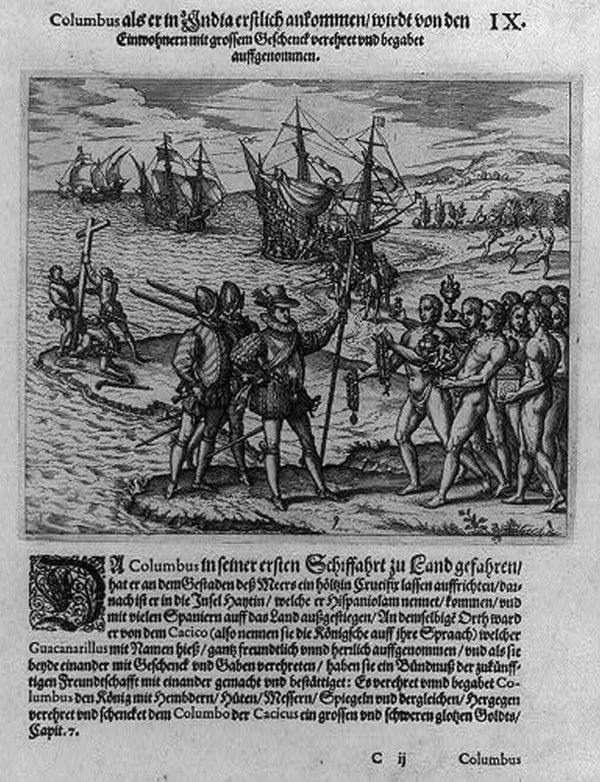 Columbus als er in India erstlich ankommen/ wirdt von den IX.
Einwohnern mit grossem Geschenck verehret vnd begabet
auffgenommen.
9
DA Columbus in seiner ersten Schiffahrt zu Land gefahren/
hat er an dem Gestaden deß Meers ein höltzin Crucifix lassen auffrichten/ dar-
nach ist er in die Insel Haytin/ welche er Hispaniolam nennet/ kommen/ vnd
mit vielen Spaniern auff das Land außgestiegen/ An demselbigē Orth ward
er von dem Cacico (also nennen sie die Könige auff ihre Spraach) welcher
Guacanarillus mit Namen hieß/ gantz freundtlich vnnd herrlich auffgenommen/ vnd als sie
beyde einander mit Geschenck vnd Gaben verehreten/ haben sie ein Bündnuß der zukünff-
tigen Freundtschafft mit einander gemacht vnd bestättiget: Es verehret vnnd begabet Co-
lumbus den König mit Hembdern/ Hüten/ Messern/ Spiegeln vnd dergleichen/ Hergegen
verehret vnd schencket dem Columbo der Cacicus ein grossen vnd schweren glotzen Goldts/
Capit. 7.
C ij Columbus